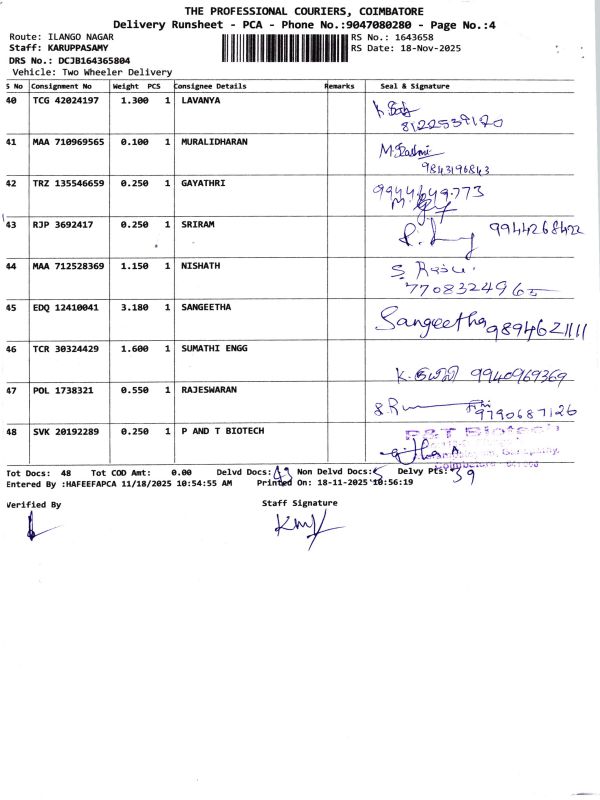 THE PROFESSIONAL COURIERS, COIMBATORE
Delivery Runsheet - PCA - Phone No.:9047080280 - Page No.:4
Route: ILANGO NAGAR RS No.: 1643658
Staff: KARUPPASAMY RS Date: 18-Nov-2025
DRS No.: DCJB164365804
Vehicle: Two Wheeler Delivery
S No Consignment No Weight PCS Consignee Details Remarks Seal & Signature
40 TCG 42024197 1.300 1 LAVANYA
8122539120
41 MAA 710969565 0.100 1 MURALIDHARAN
9843196843
42 TRZ 135546659 0.250 1 GAYATHRI
9944649773
43 RJP 3692417 0.250 1 SRIRAM
44 MAA 712528369 1.150 1 NISHATH
7708324965
45 EDQ 12410041 3.180 1 SANGEETHA
Sangeetha 9894621111
46 TCR 30324429 1.600 1 SUMATHI ENGG
9940969369
47 POL 1738321 0.550 1 RAJESWARAN
9790687126
48 SVK 20192289 0.250 1 P AND T BIOTECH
P&T Biotech
Tot Docs: 48 Tot COD Amt: 0.00 Delvd Docs: 43 Non Delvd Docs: 5 Delvy Pts: 39
Entered By :HAFEEFAPCA 11/18/2025 10:54:55 AM Printed On: 18-11-2025 10:56:19
Verified By Staff Signature